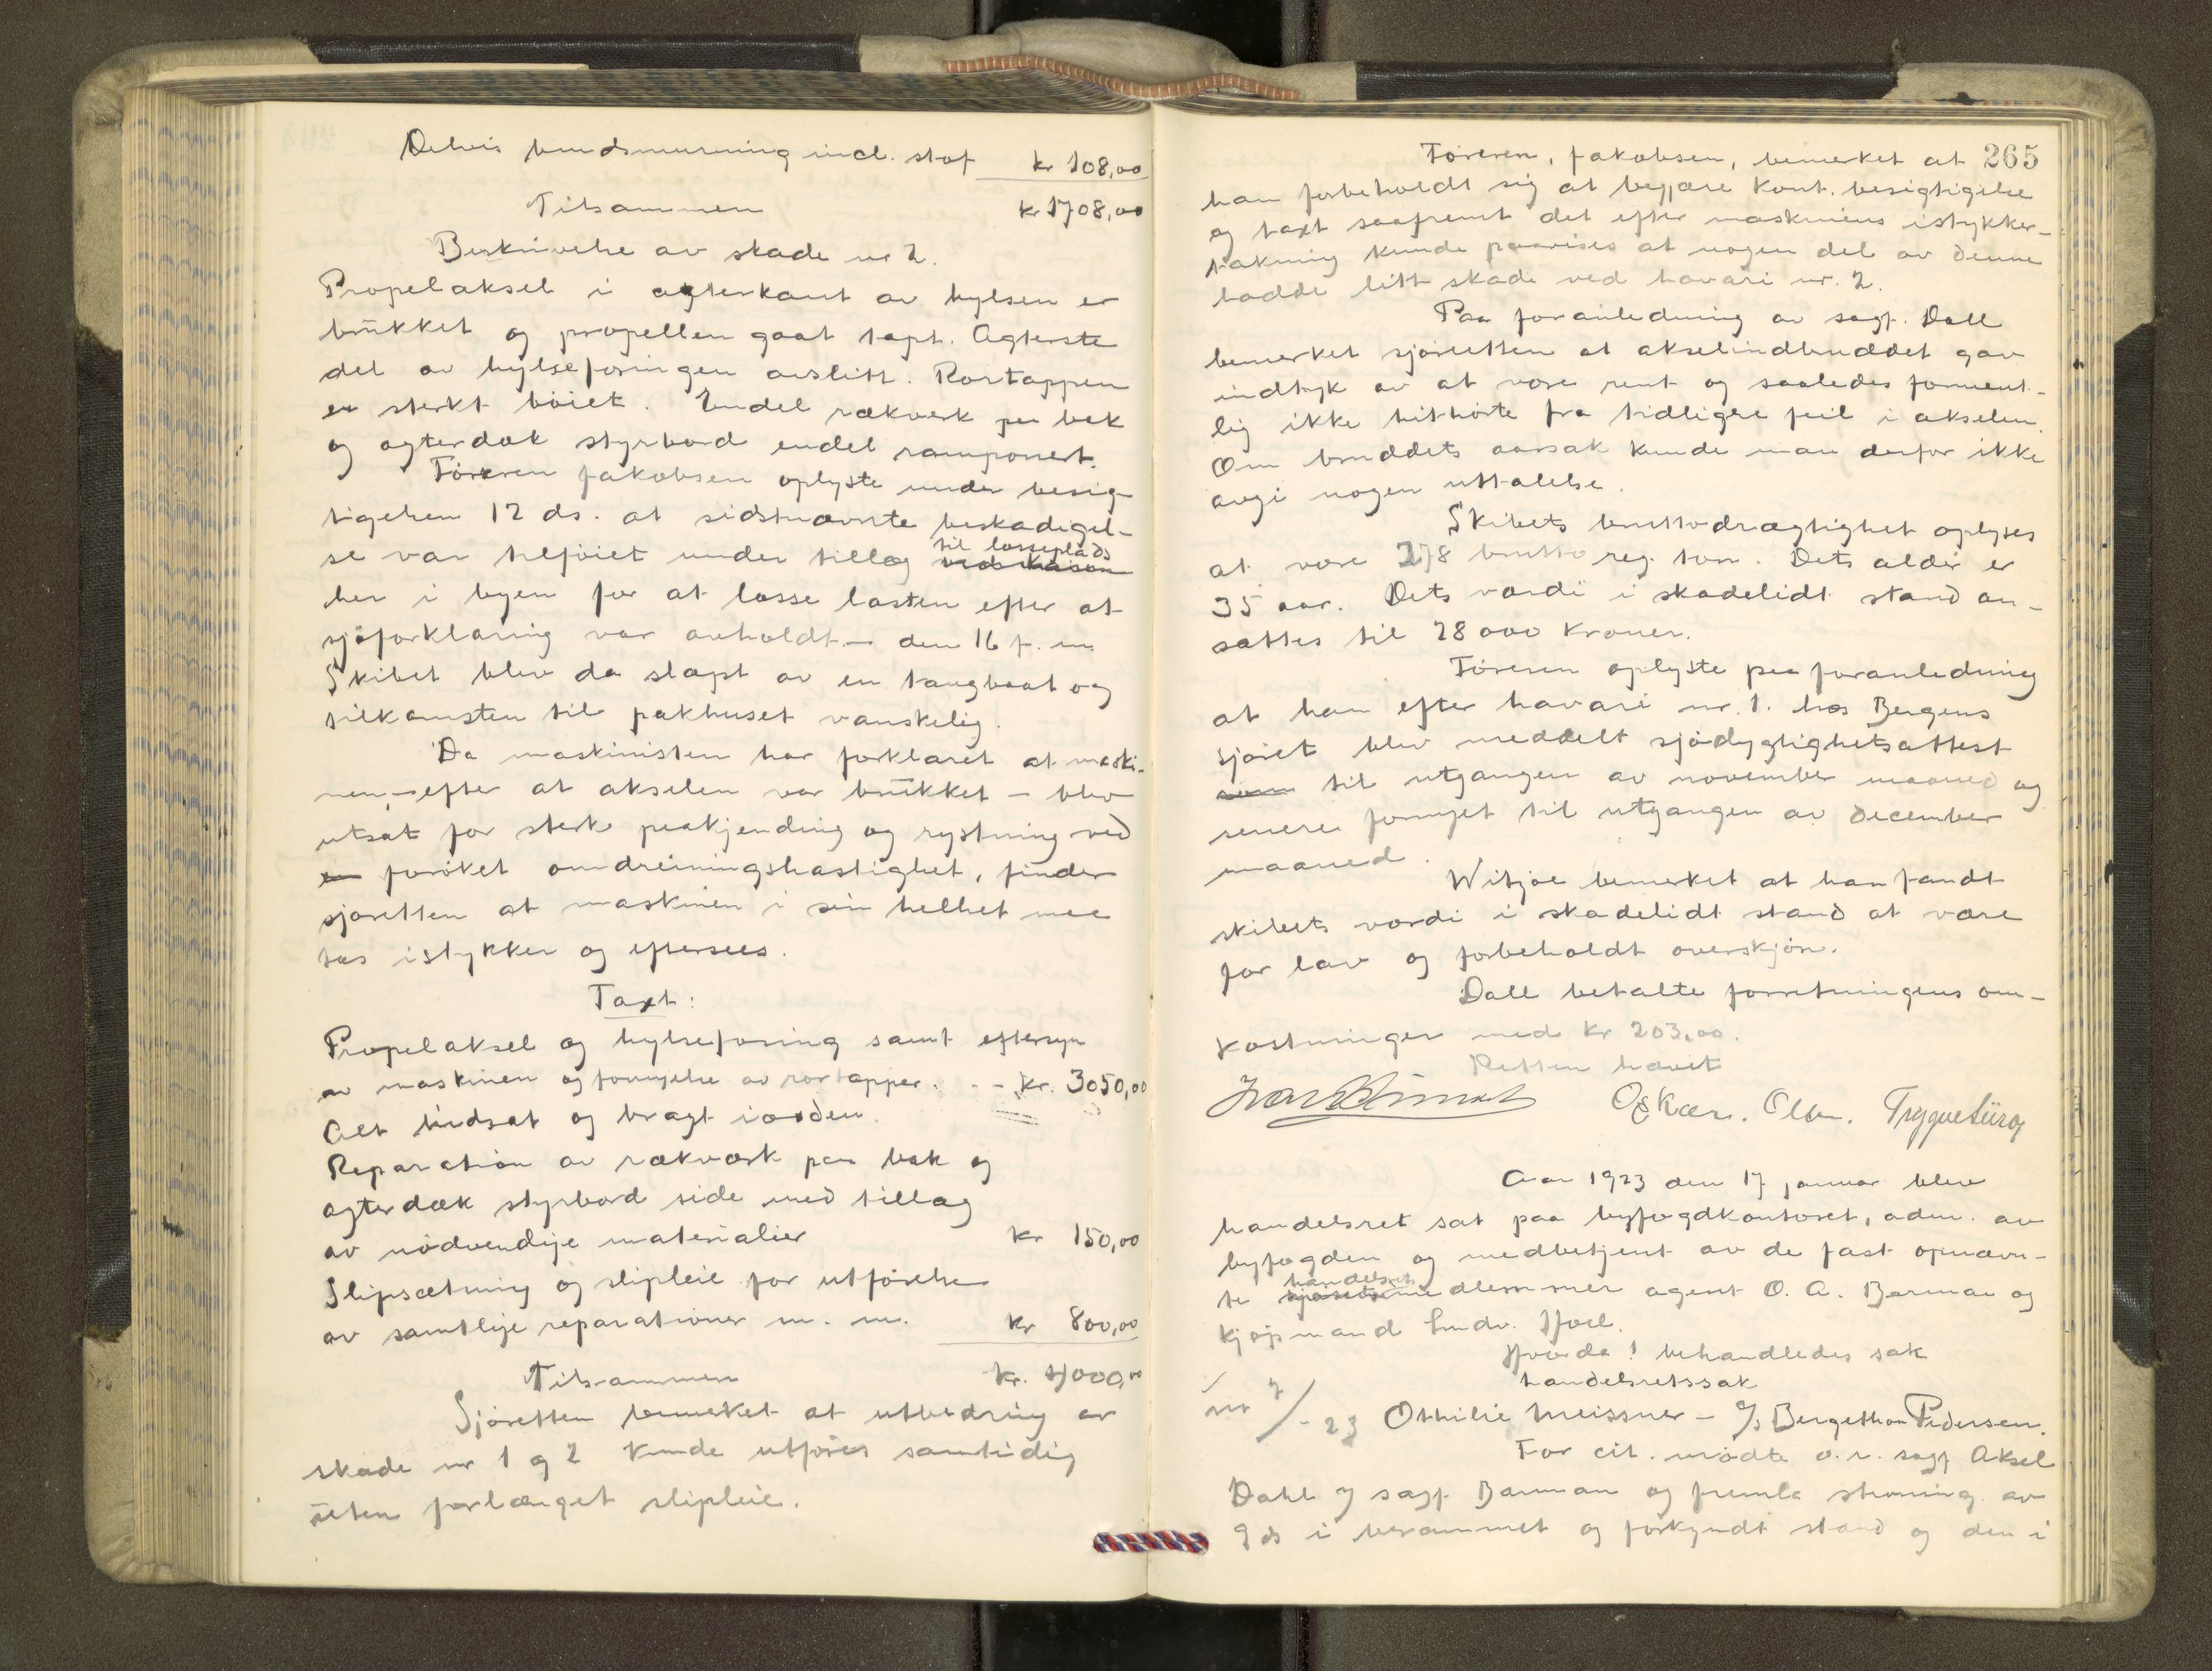 Delvis bundsmurning incl. stof kr 108,00
Tilsammen kr 1708,00
Beskrivelse av skade nr 2.
Propelaksel i agterkant av hylsen er
brükket og propellen gaat tapt. Agterste
del av hylseforingen avslitt. Rortappen
er sterkt böiet. Endel rækverk paa bak
og agterdæk styrbord endel ramponert.
Föreren Jakobsen oplyste under besig-
tigelsen 12 ds. at sidstnævnte beskadigel-
se var tilföiet under tillæg til losseplads
her i byen for at losse lasten efter at
sjöforklaring var avholdt - den 16 f. m.
Skibet blev da slæpt av en taugbaat og
tilkomsten til pakhuset vanskelig.
Da maskinisten har forklaret at maski-
nen, - efter at akselen var brükket - blev
utsat for sterk paakjending og rystning ved
foröket omdreiningshastighet, finder
sjöretten at maskinen i sin helhet maa
tas istykker og eftersees.
Taxt:
Propelaksel og hylseforing samt eftersyn
av maskinen og fornyelse av rortapper. - - kr. 3050,00
Alt indsat og bragt iorden.
Reparation av rækværk paa bak og
agterdæk styrbord side med tillæg
av nödvendige materialier kr 150,00
Slipsætning og slipleie for utförelse
av samtlige reparationer m. m. kr 800,00
Tilsammen kr. 4000,00
Sjöretten bemerket at utbedring av
skade nr 1 og 2 kunde utföres samtidig
uten forlænget slipleie.
265
Föreren, Jakobsen, bemerket at
han forbeholdt sig at begjære kont. besigtigelse
og taxt saafremt det efter maskinens istykker-
takning kunde paavises at nogen del av denne
hadde litt skade ved havari nr. 2.
Paa foranledning av sagf. Dall
bemerket sjöretten at akselindbruddet gav
indtryk av at være rent og saaledes forment-
lig ikke hithörte fra tidligere feil i akselen.
Om bruddets aarsak kunde man derfor ikke
avgi nogen uttalelse.
Skibets bruttodrægtighet oplyses
at være 278 brutto reg. ton. Dets alder er
35 aar. Dets værdi i skadelidt stand an-
sattes til 28000 kroner.
Föreren oplyste paa foranledning
at han efter havari nr. 1. hos Bergens
sjöret blev meddelt sjödygtighetsattest
til utgangen av november maaned og
senere fornyet til utgangen av december
maaned.
Witzöe bemerket at han fandt
skibets værdi i skadelidt stand at være
for lav og forbeholdt overskjön.
Dall betalte forretningens om-
kostninger med kr 203,00.
Retten hævet
Oskar. Olsen. Trygve
Aar 1923 den 17 januar blev
handelsret sat paa byfogdkontoret, adm. av
byfogden og medbetjent av de fast opnævn-
te handelsretsmedlemmer agent O. A. Barman og
kjöpmand Ludv. Hoel.
Hvorda! behandledes sak
handelsretssak
nr 7/-23 Othilie Meissner - A/s Bergethon Pedersen.
For cit. mödte o.r. sagf Aksel
Dahl v/ sagf. Barman og fremla stevning av
9 ds i berammet og forkyndt stand og den i